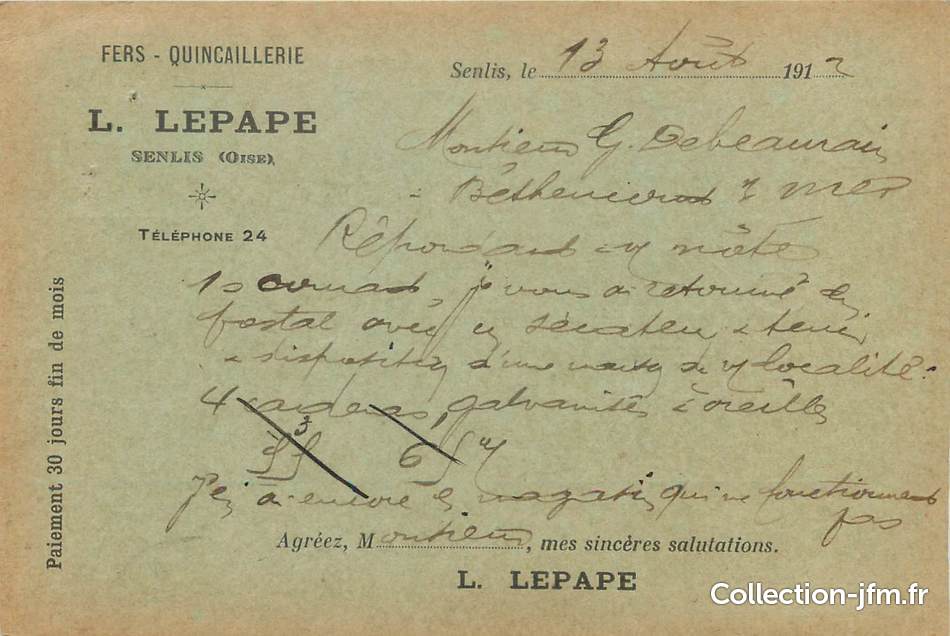 FERS - QUINCAILLERIE
L. LEPAPE
SENLIS (OISE)
TÉLÉPHONE 24
Paiement 30 jours fin de mois
Senlis, le 13 Août 1912
Monsieur G. Debeaurain
Béthencourt s/ mer
Répondant à v/ note
10 courant, je vous ai retourné
postal avec
à disposition d'une de v/ localité.
4 galvanisés à oreilles
6
J'en ai encore en magasin qui ne fonctionnent
pas
Agréez, Monsieur, mes sincères salutations.
L. LEPAPE
Collection-jfm.fr